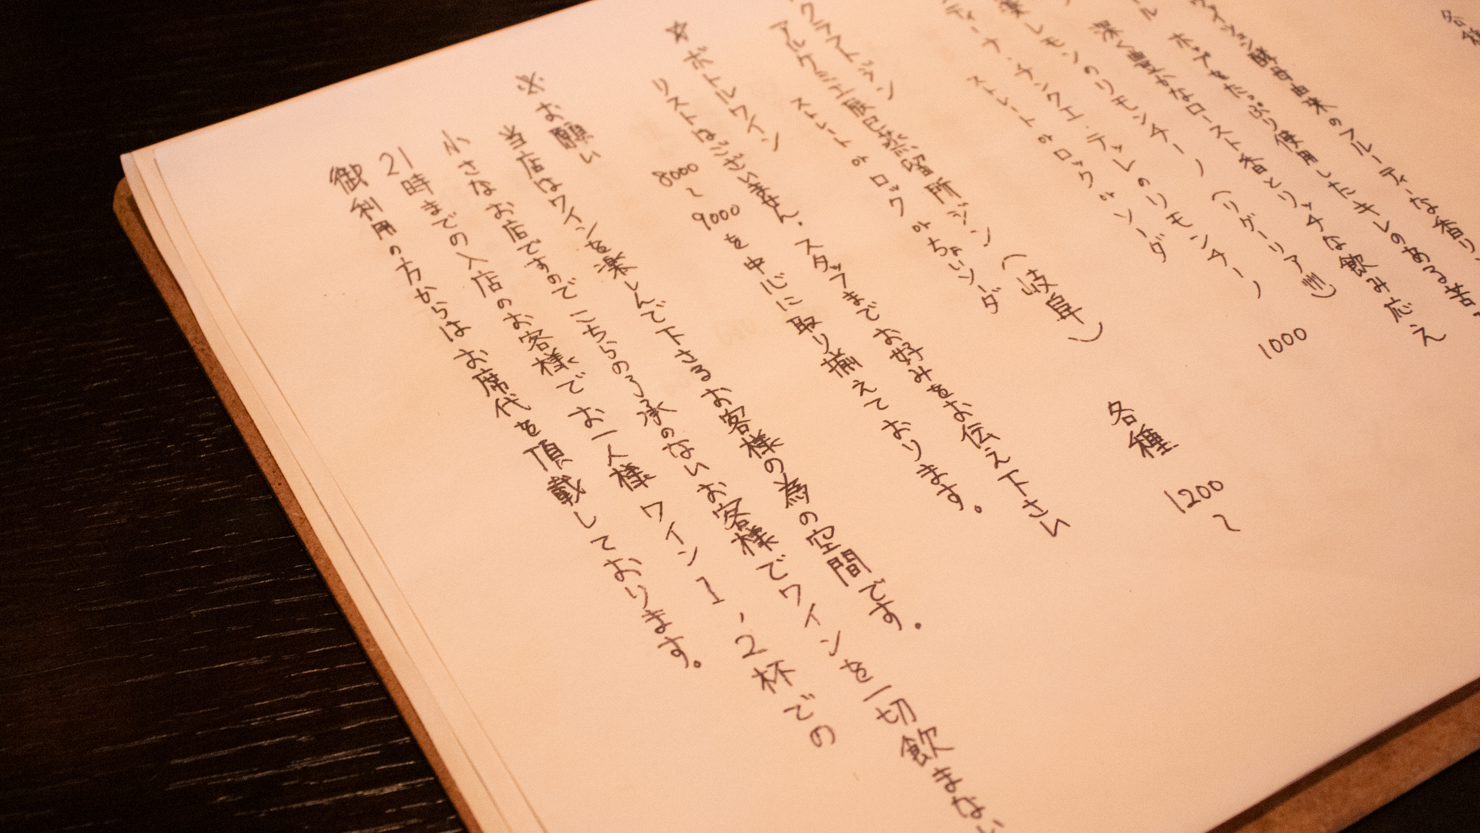 各種
イツ酵母由来のフルーティーな香り
ホップをたっぷり使用したキレのある苦
深く豊かなロースト香とリッチな飲み応え
レモンのリモンチーノ(リグーリア州) 1000
ティーナ・チンクエ・テッレのリモンチーノ
ストレート or ロック or ソーダ
各種 1200〜
クラフトジン
アルケミエ辰巳蒸留所ジン(岐阜)
ストレート or ロック or ちょいソーダ
☆ボトルワイン
リストはございません。スタッフまでお好みをお伝え下さい
8000〜9000を中心に取り揃えております。
※お願い
当店はワインを楽しんで下さるお客様の為の空間です。
小さなお店ですのでこちらの了承のないお客様でワインを一切飲まない
21時までの入店のお客様でお一人様ワイン1,2杯での
御利用の方からはお席代を頂戴しております。